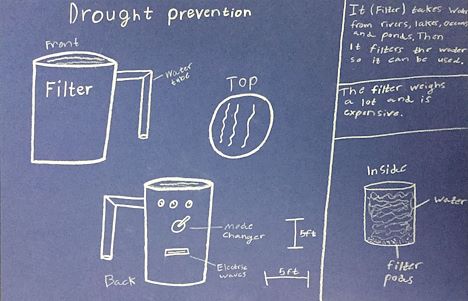 Drought prevention
Front
Filter
Water
tube
TOP
Back
mode
changer
Electric
waves
5ft
5ft
It (Filter) takes water
from rivers, lakes, oceans
and ponds. Then
It filters the water
so it can be used.
The filter weighs
a lot and is
expensive.
Inside
water
filter
pods